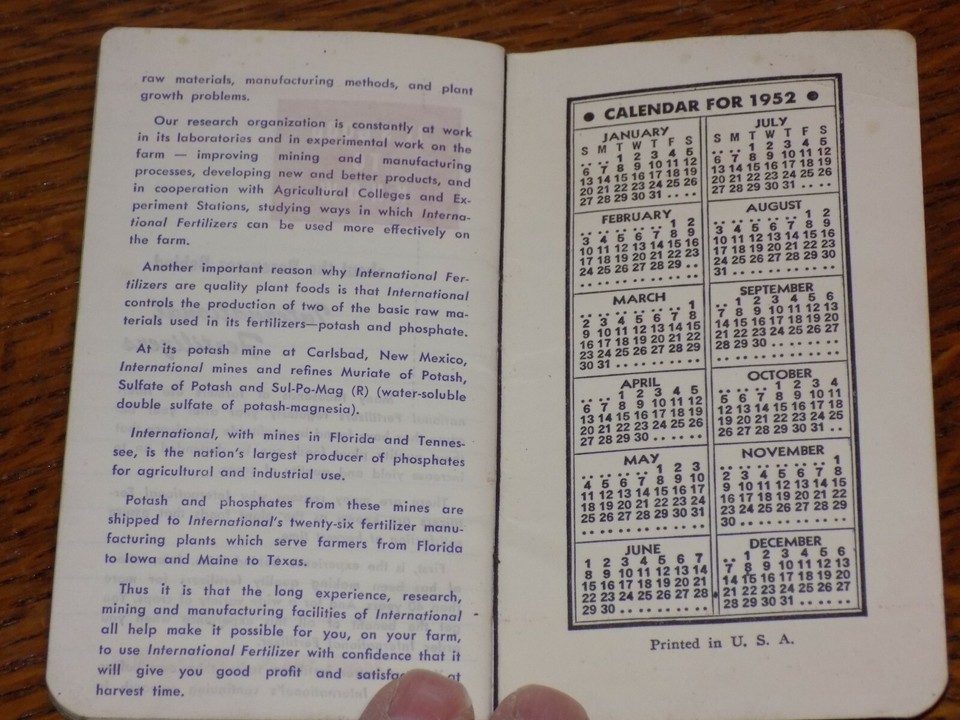 raw materials, manufacturing methods, and plant
growth problems.
Our research organization is constantly at work
in its laboratories and in experimental work on the
farm — improving mining and manufacturing
processes, developing new and better products, and
in cooperation with Agricultural Colleges and Ex-
periment Stations, studying ways in which Interna-
tional Fertilizers can be used more effectively on
the farm.
Another important reason why International Fer-
tilizers are quality plant foods is that International
controls the production of two of the basic raw ma-
terials used in its fertilizers—potash and phosphate.
At its potash mine at Carlsbad, New Mexico,
International mines and refines Muriate of Potash,
Sulfate of Potash and Sul-Po-Mag (R) (water-soluble
double sulfate of potash-magnesia).
International, with mines in Florida and Tennes-
see, is the nation's largest producer of phosphates
for agricultural and industrial use.
Potash and phosphates from these mines are
shipped to International's twenty-six fertilizer manu-
facturing plants which serve farmers from Florida
to Iowa and Maine to Texas.
Thus it is that the long experience, research,
mining and manufacturing facilities of International
all help make it possible for you, on your farm,
to use International Fertilizer with confidence that it
will give you good profit and at
harvest time.
● CALENDAR FOR 1952 ●
JANUARY
S M T W T F S
. . . . 1 2 3 4 5
6 7 8 9 10 11 12
13 14 15 16 17 18 19
20 21 22 23 24 25 26
27 28 29 30 31 . . . .
FEBRUARY
. . . . . . . . . . 1 2
3 4 5 6 7 8 9
10 11 12 13 14 15 16
17 18 19 20 21 22 23
24 25 26 27 28 29 . .
MARCH
. . . . . . . . . . . . 1
2 3 4 5 6 7 8
9 10 11 12 13 14 15
16 17 18 19 20 21 22
23 24 25 26 27 28 29
30 31 . . . . . . . . . .
APRIL
. . . . 1 2 3 4 5
6 7 8 9 10 11 12
13 14 15 16 17 18 19
20 21 22 23 24 25 26
27 28 29 30 . . . . . .
MAY
. . . . . . . . 1 2 3
4 5 6 7 8 9 10
11 12 13 14 15 16 17
18 19 20 21 22 23 24
25 26 27 28 29 30 31
JUNE
1 2 3 4 5 6 7
8 9 10 11 12 13 14
15 16 17 18 19 20 21
22 23 24 25 26 27 28
29 30 . . . . . . . . . .
JULY
S M T W T F S
. . . . 1 2 3 4 5
6 7 8 9 10 11 12
13 14 15 16 17 18 19
20 21 22 23 24 25 26
27 28 29 30 31 . . . .
AUGUST
. . . . . . . . . . 1 2
3 4 5 6 7 8 9
10 11 12 13 14 15 16
17 18 19 20 21 22 23
24 25 26 27 28 29 30
31 . . . . . . . . . . . .
SEPTEMBER
. . 1 2 3 4 5 6
7 8 9 10 11 12 13
14 15 16 17 18 19 20
21 22 23 24 25 26 27
28 29 30 . . . . . . . .
OCTOBER
. . . . . . 1 2 3 4
5 6 7 8 9 10 11
12 13 14 15 16 17 18
19 20 21 22 23 24 25
26 27 28 29 30 31 . .
NOVEMBER
. . . . . . . . . . . . 1
2 3 4 5 6 7 8
9 10 11 12 13 14 15
16 17 18 19 20 21 22
23 24 25 26 27 28 29
30 . . . . . . . . . . . .
DECEMBER
. . 1 2 3 4 5 6
7 8 9 10 11 12 13
14 15 16 17 18 19 20
21 22 23 24 25 26 27
28 29 30 31 . . . . . .
Printed in U. S. A.